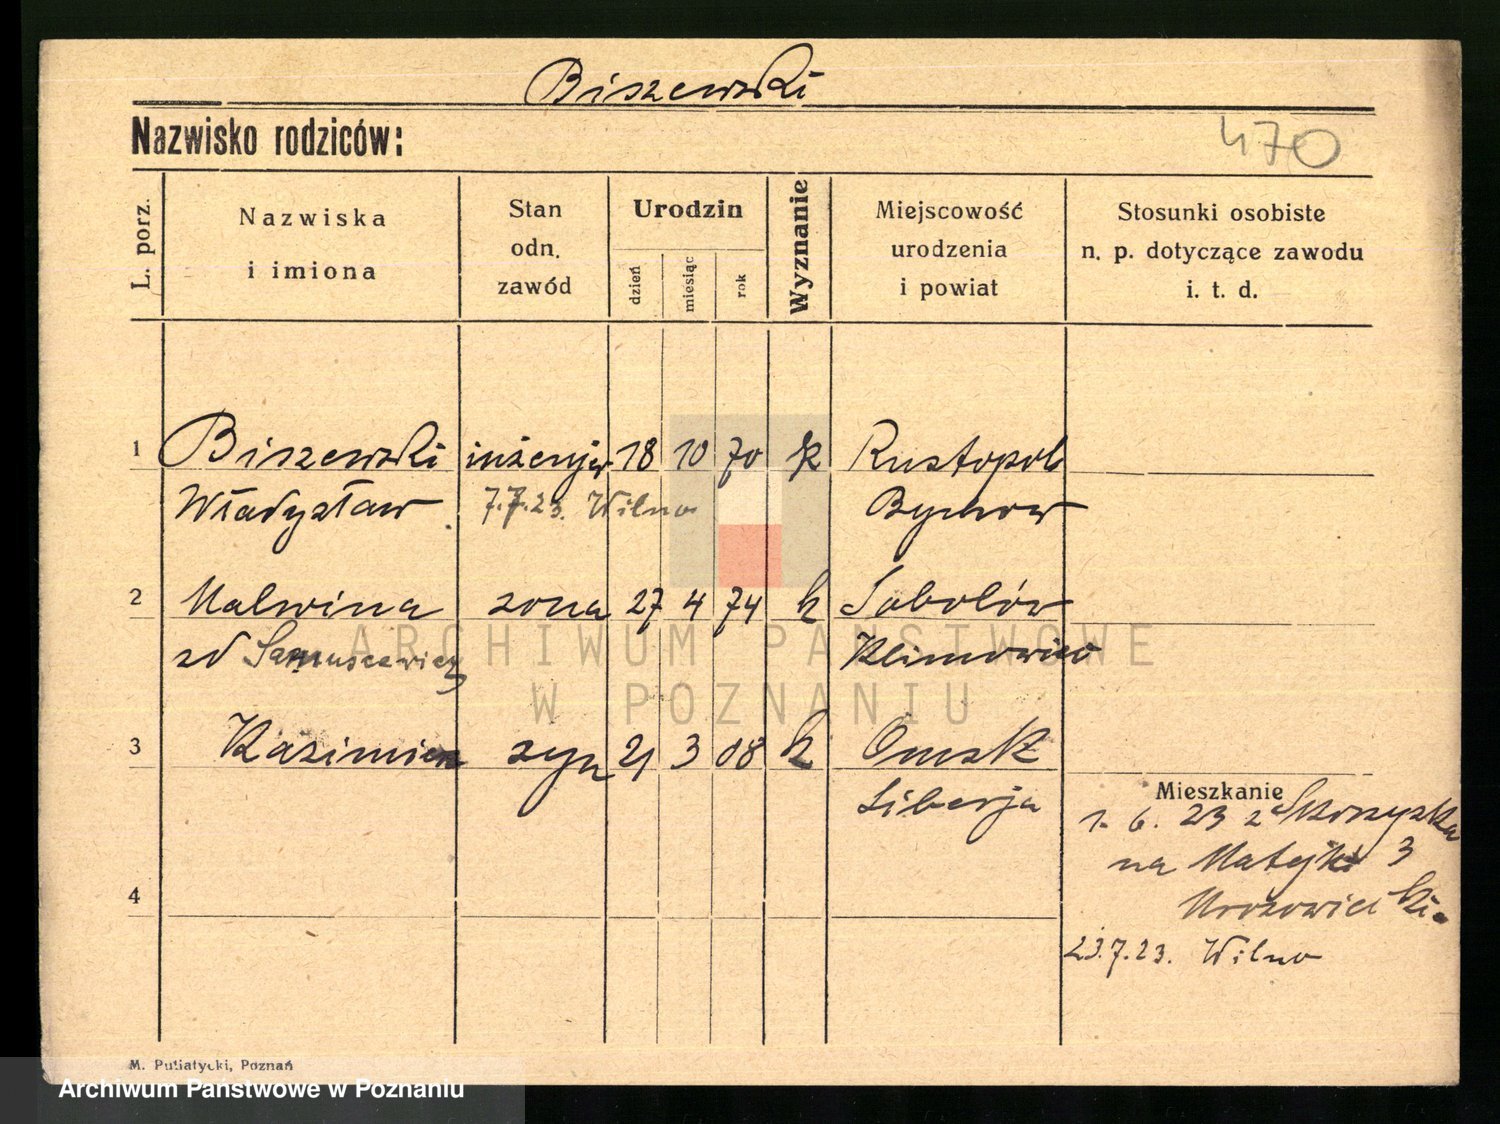 Biszewski
Nazwisko rodziców:
470
L. porz.
Nazwiska
i imiona
Stan
odn.
zawód
Urodzin
dzień
miesiąc
rok
Wyznanie
Miejscowość
urodzenia
i powiat
Stosunki osobiste
n. p. dotyczące zawodu
i. t. d.
1 Biszewski inżenjer 18 10 70 k Rustopol
Władysław 7.7.23. Wilno Bychow
2 Malwina żona 27 4 74 k Sobolów
zd Klimowicz
3 Kazimierz syn 21 3 08 k Omsk
Siberja
Mieszkanie
1. 6. 23 z
na Matejki 3
4
23.7.23. Wilno
M. Putiatycki, Poznań
ARCHIWUM PAŃSTWOWE
W POZNANIU
Archiwum Państwowe w Poznaniu